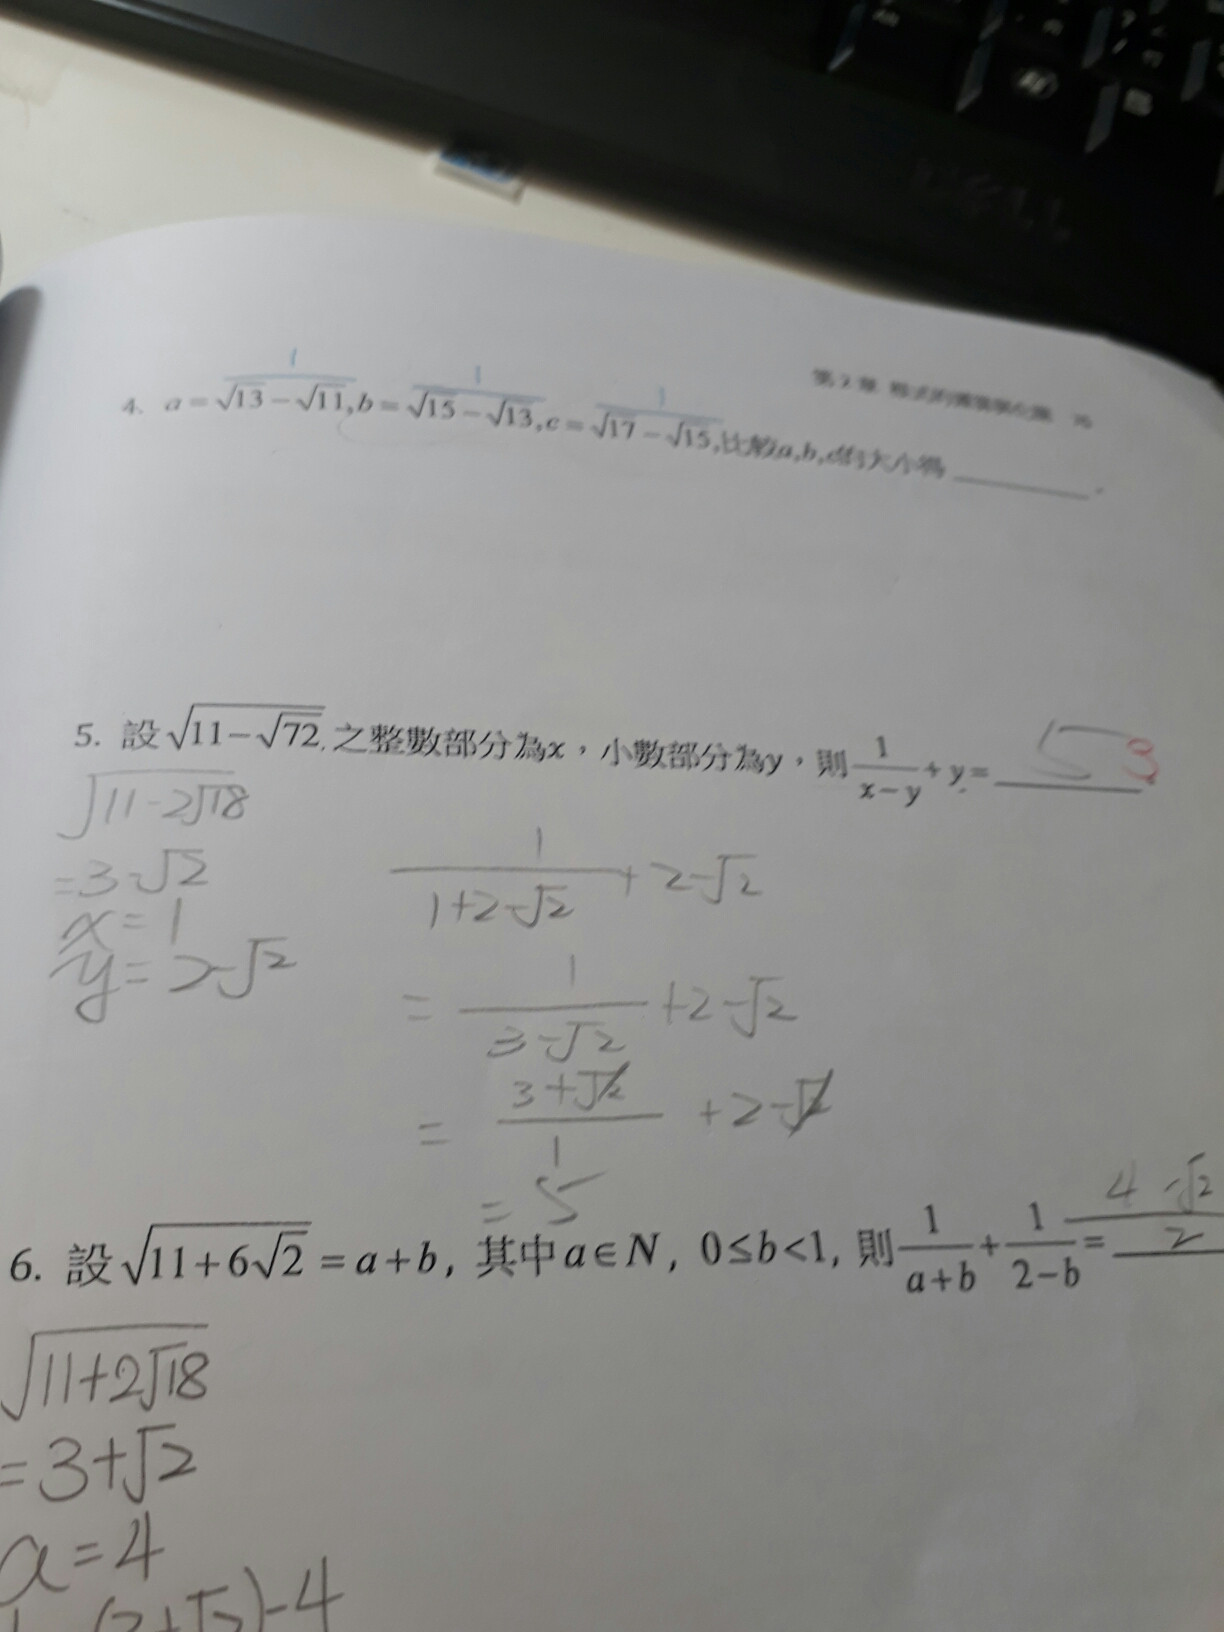 4. a = √13 − √11, b = √15 − √13, c = √17 − √15, 比較a,b,c的大小為 ______.
1 1 1
5. 設 √(11−√72) 之整數部分為x，小數部分為y，則 1/(x−y) + y = 5 3
√(11-2√18)
=3-√2
x=1
y=2-√2
1/(1+2-√2) + 2-√2
= 1/(3-√2) + 2-√2
= (3+√2)/1 + 2-√2
= 5
6. 設 √(11+6√2) = a+b, 其中 a∈N, 0≤b<1, 則 1/(a+b) + 1/(2−b) = (4-√2)/2
√(11+2√18)
=3+√2
a=4
(3+√2)-4